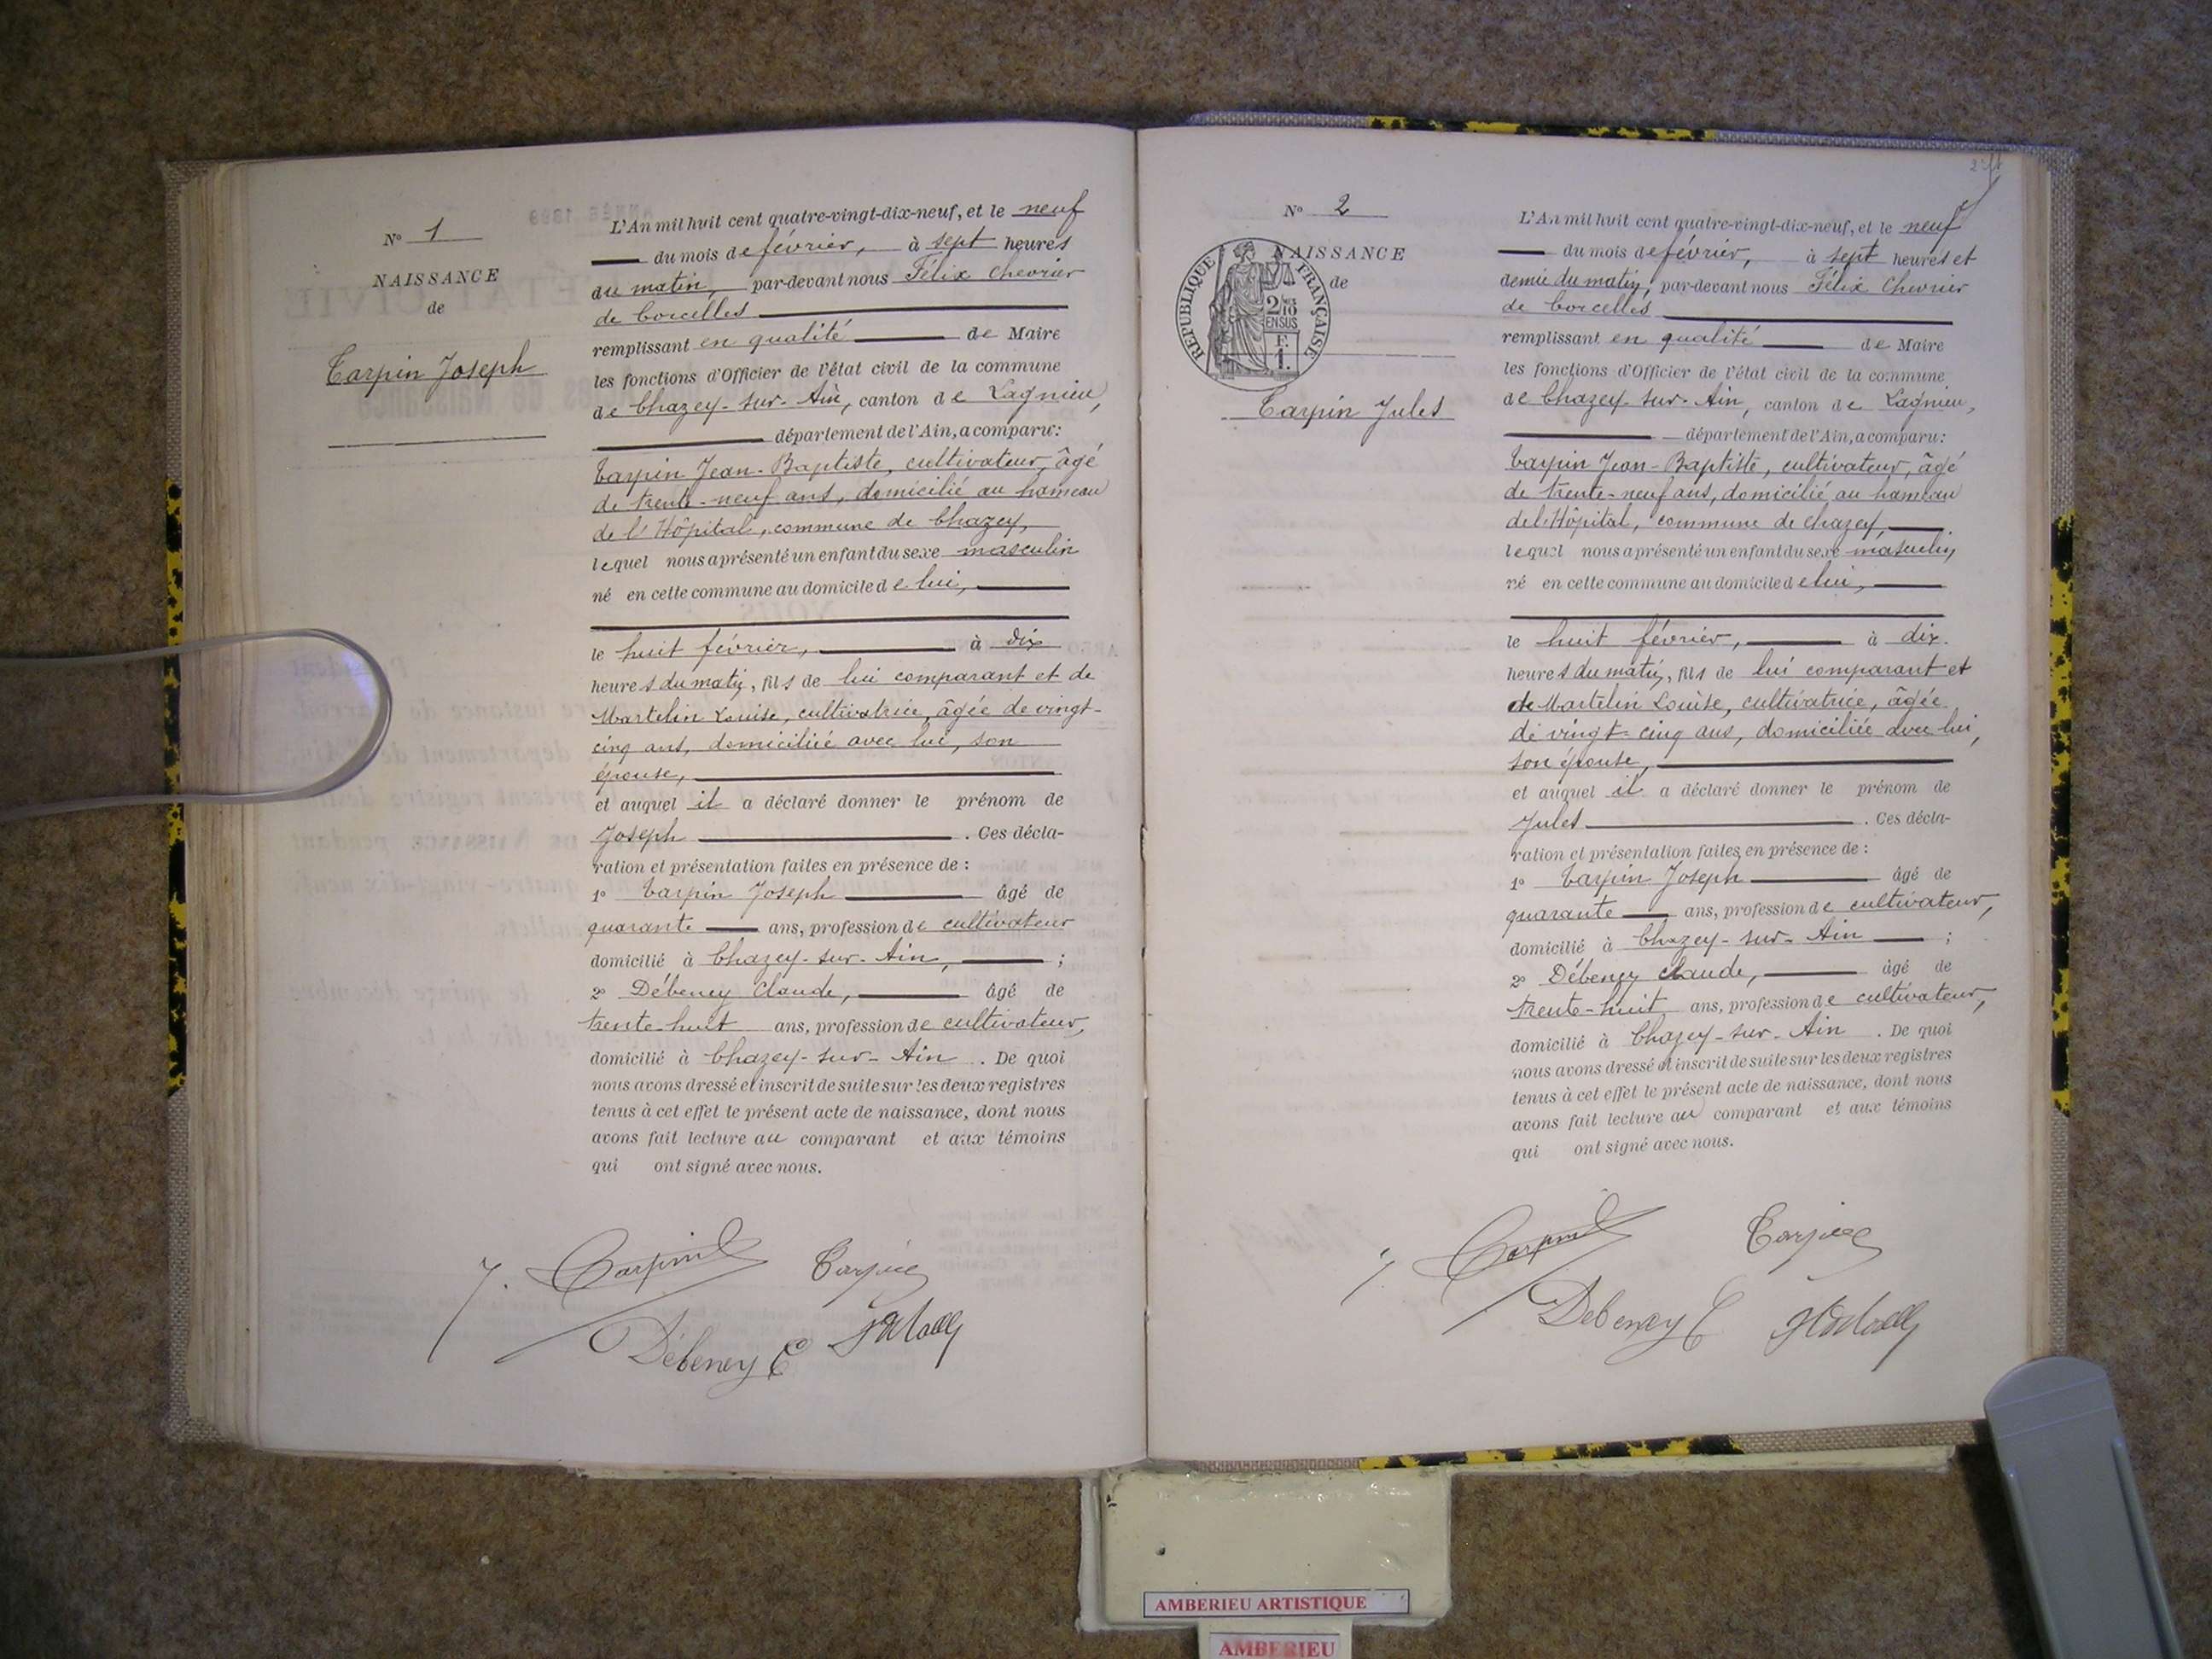 N° 1
NAISSANCE
de
Tarpin Joseph
L'An mil huit cent quatre-vingt-dix-neuf, et le neuf
du mois de février, à sept heures
du matin, par-devant nous Félix Chevrier
de Corcelles
remplissant en qualité de Maire
les fonctions d'Officier de l'état civil de la commune
de Chazey-sur-Ain, canton de Lagnieu,
département de l'Ain, a comparu:
Tarpin Jean-Baptiste, cultivateur, âgé
de trente-neuf ans, domicilié au hameau
de l'Hôpital, commune de Chazey,
lequel nous a présenté un enfant du sexe masculin
né en cette commune au domicile de lui,
le huit février, à dix
heures du matin, fils de lui comparant et de
Martelin Louise, cultivatrice, âgée de vingt-
cinq ans, domiciliée avec lui, son
épouse,
et auquel il a déclaré donner le prénom de
Joseph . Ces décla-
ration et présentation faites en présence de :
1° Tarpin Joseph âgé de
quarante ans, profession de cultivateur
domicilié à Chazey-sur-Ain, ;
2° Débeney Claude, âgé de
trente-huit ans, profession de cultivateur,
domicilié à Chazey-sur-Ain . De quoi
nous avons dressé et inscrit de suite sur les deux registres
tenus à cet effet le présent acte de naissance, dont nous
avons fait lecture au comparant et aux témoins
qui ont signé avec nous.
J. Tarpin Tarpin
Débeney C
N° 2
NAISSANCE
de
RÉPUBLIQUE FRANÇAISE
2/10
EN SUS
Tarpin Jules
L'An mil huit cent quatre-vingt-dix-neuf, et le neuf
du mois de février, à sept heures et
demie du matin, par-devant nous Félix Chevrier
de Corcelles
remplissant en qualité de Maire
les fonctions d'Officier de l'état civil de la commune
de Chazey-sur-Ain, canton de Lagnieu,
département de l'Ain, a comparu:
Tarpin Jean-Baptiste, cultivateur, âgé
de trente-neuf ans, domicilié au hameau
de l'Hôpital, commune de Chazey,
lequel nous a présenté un enfant du sexe masculin
né en cette commune au domicile de lui,
le huit février, à dix
heures du matin, fils de lui comparant et
de Martelin Louise, cultivatrice, âgée
de vingt-cinq ans, domiciliée avec lui,
son épouse,
et auquel il a déclaré donner le prénom de
Jules . Ces décla-
ration et présentation faites en présence de :
1° Tarpin Joseph âgé de
quarante ans, profession de cultivateur,
domicilié à Chazey-sur-Ain ;
2° Débeney Claude, âgé de
trente-huit ans, profession de cultivateur,
domicilié à Chazey-sur-Ain . De quoi
nous avons dressé et inscrit de suite sur les deux registres
tenus à cet effet le présent acte de naissance, dont nous
avons fait lecture au comparant et aux témoins
qui ont signé avec nous.
J. Tarpin Tarpin
Debeney C
AMBERIEU ARTISTIQUE
AMBERIEU